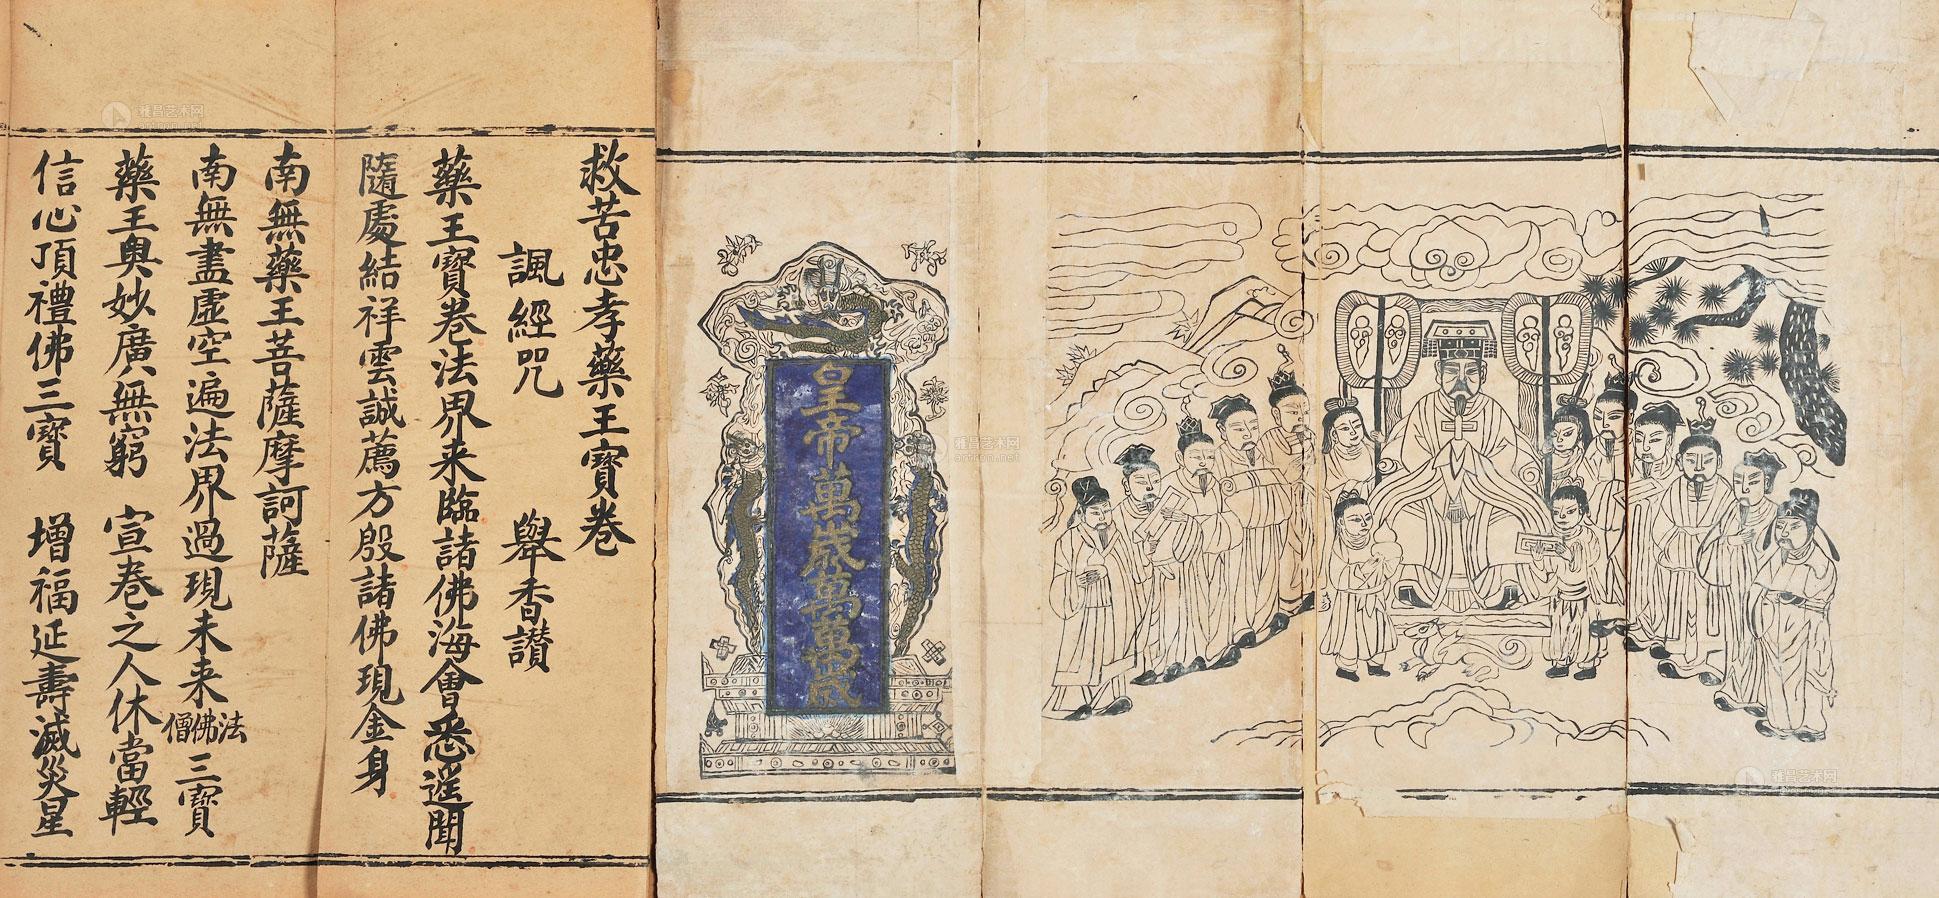 皇帝萬歲萬萬歲
救苦忠孝藥王寶卷
諷經咒 舉香讃
藥王寶卷法界来臨諸佛海會悉遥聞
隨處結祥雲誠薦方殷諸佛現金身
南無藥王菩薩摩訶薩
南無盡虛空遍法界過現未来法佛僧三寶
藥王奥妙廣無窮 宣卷之人休當輕
信心頂禮佛三寶 增福延壽滅災星
雅昌艺术网
artron.net
雅昌艺术网
artron.net
雅昌艺术网
artron.net